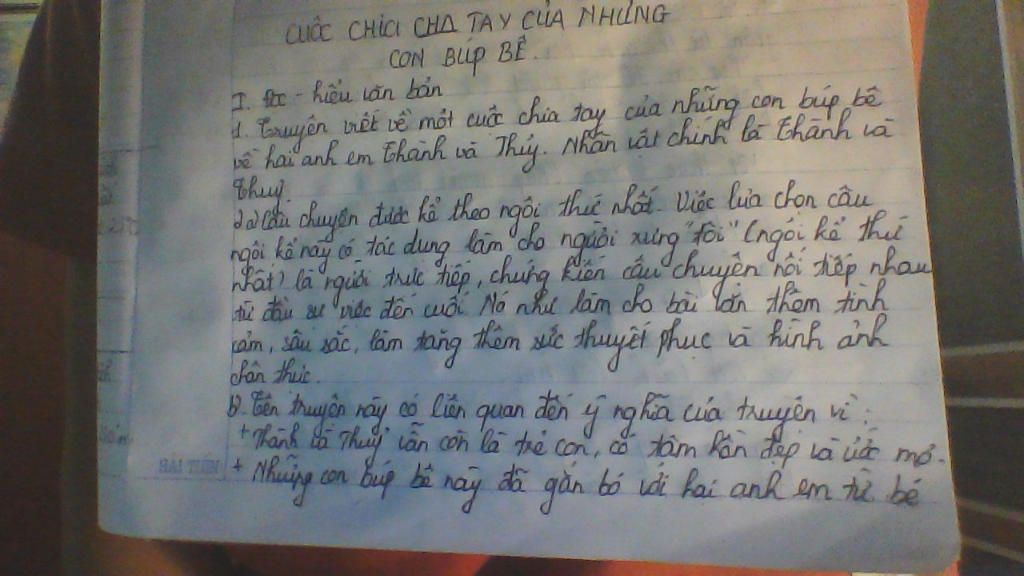 CUỘC CHIA CHA TAY CỦA NHỮNG
CON BÚP BÊ.
I. Đọc - hiểu văn bản
1. Truyện viết về một cuộc chia tay của những con búp bê
về hai anh em Thành và Thủy. Nhân vật chính là Thành và
Thuỷ.
2. a) Câu chuyện được kể theo ngôi thứ nhất. Việc lựa chọn câu
ngôi kể này có tác dụng làm cho người xưng "tôi" (ngôi kể thứ
nhất) là người trực tiếp, chứng kiến câu chuyện nối tiếp nhau
từ đầu sự việc đến cuối. Nó như làm cho bài văn thêm tình
cảm, sâu sắc, làm tăng thêm sức thuyết phục và hình ảnh
chân thực.
b). Tên truyện này có liên quan đến ý nghĩa của truyện vì:
+ Thành và Thuỷ vẫn còn là trẻ con, có tâm hồn đẹp và ước mơ.
+ Những con búp bê này đã gắn bó với hai anh em từ bé
HẢI TIẾN